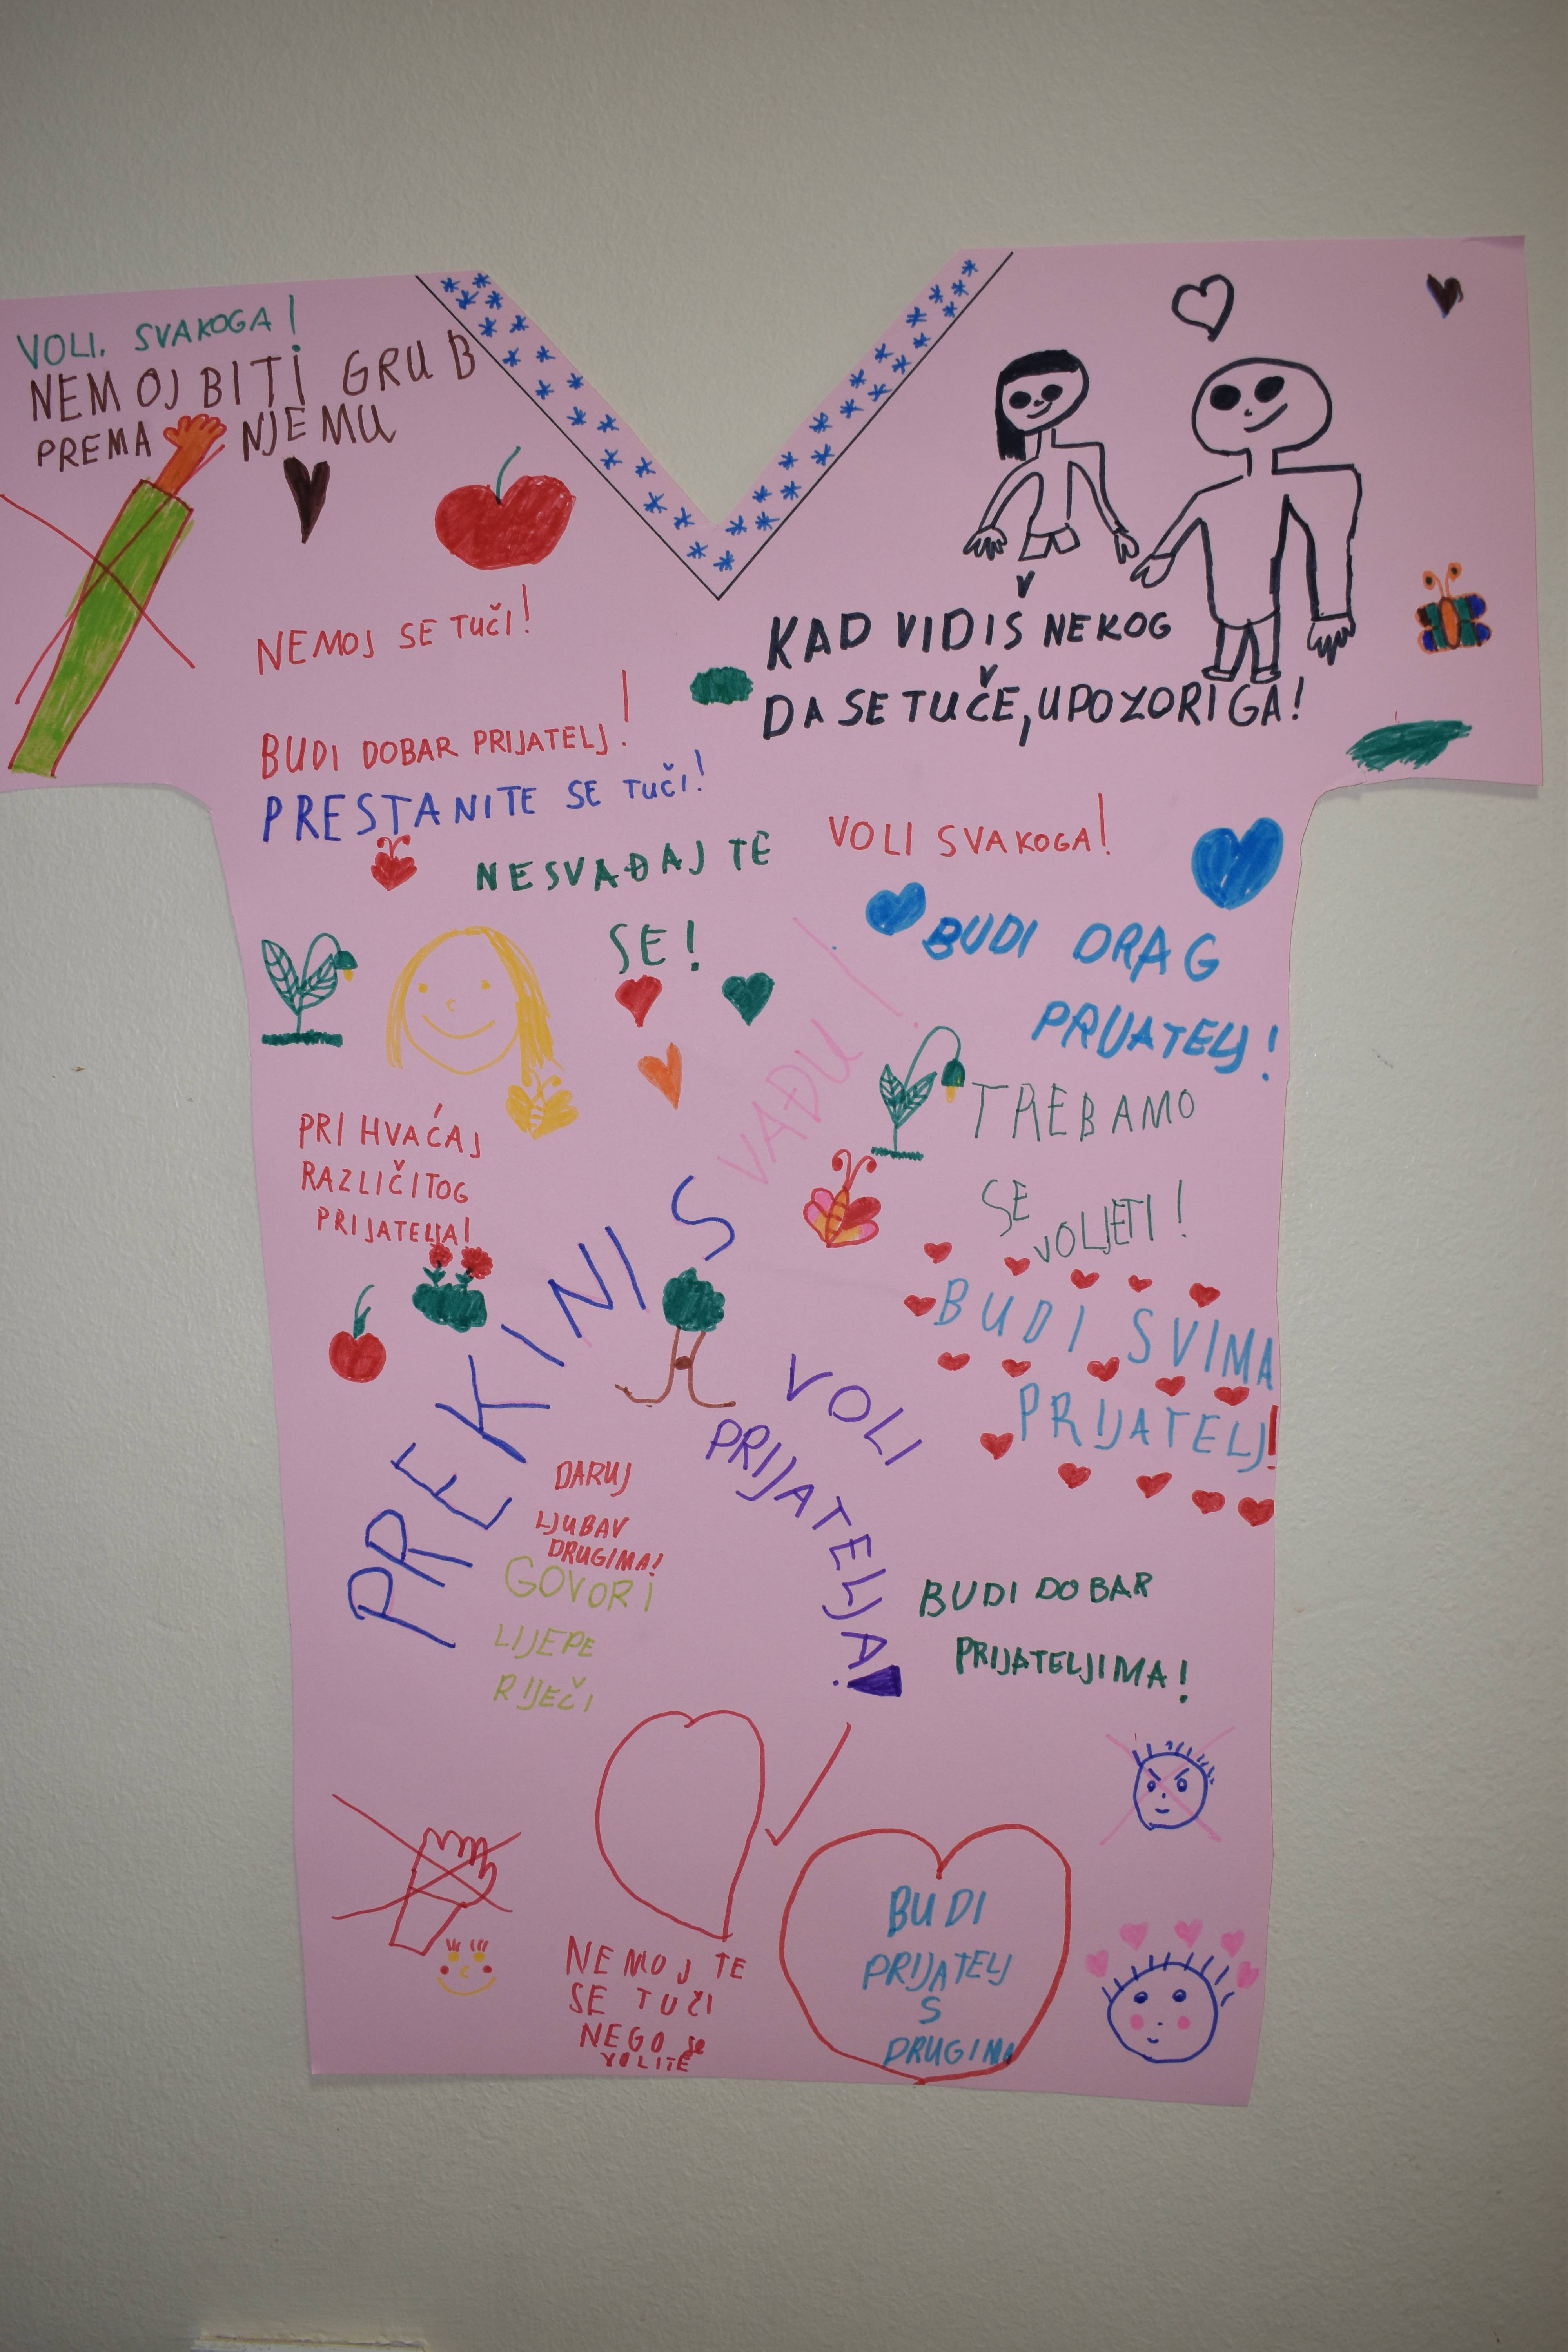 VOLI. SVAKOGA!
NEMOJ BITI GRUB
PREMA NJEMU
NEMOJ SE TUČI!
KAD VIDIŠ NEKOG
DA SE TUČE, UPOZORI GA!
BUDI DOBAR PRIJATELJ!
PRESTANITE SE TUČI!
NESVAĐAJTE
SE!
VOLI SVAKOGA!
BUDI DRAG
PRIJATELJ!
PRIHVAĆAJ
RAZLIČITOG
PRIJATELJA!
TREBAMO
SE VOLJETI!
PREKINI SVAĐU!
BUDI SVIMA
PRIJATELJ!
VOLI
PRIJATELJA!
DARUJ
LJUBAV
DRUGIMA!
GOVORI
LIJEPE
RIJEČI
BUDI DOBAR
PRIJATELJIMA!
NEMOJTE
SE TUČI
NEGO se
VOLITE
BUDI
PRIJATELJ
S
DRUGIMA